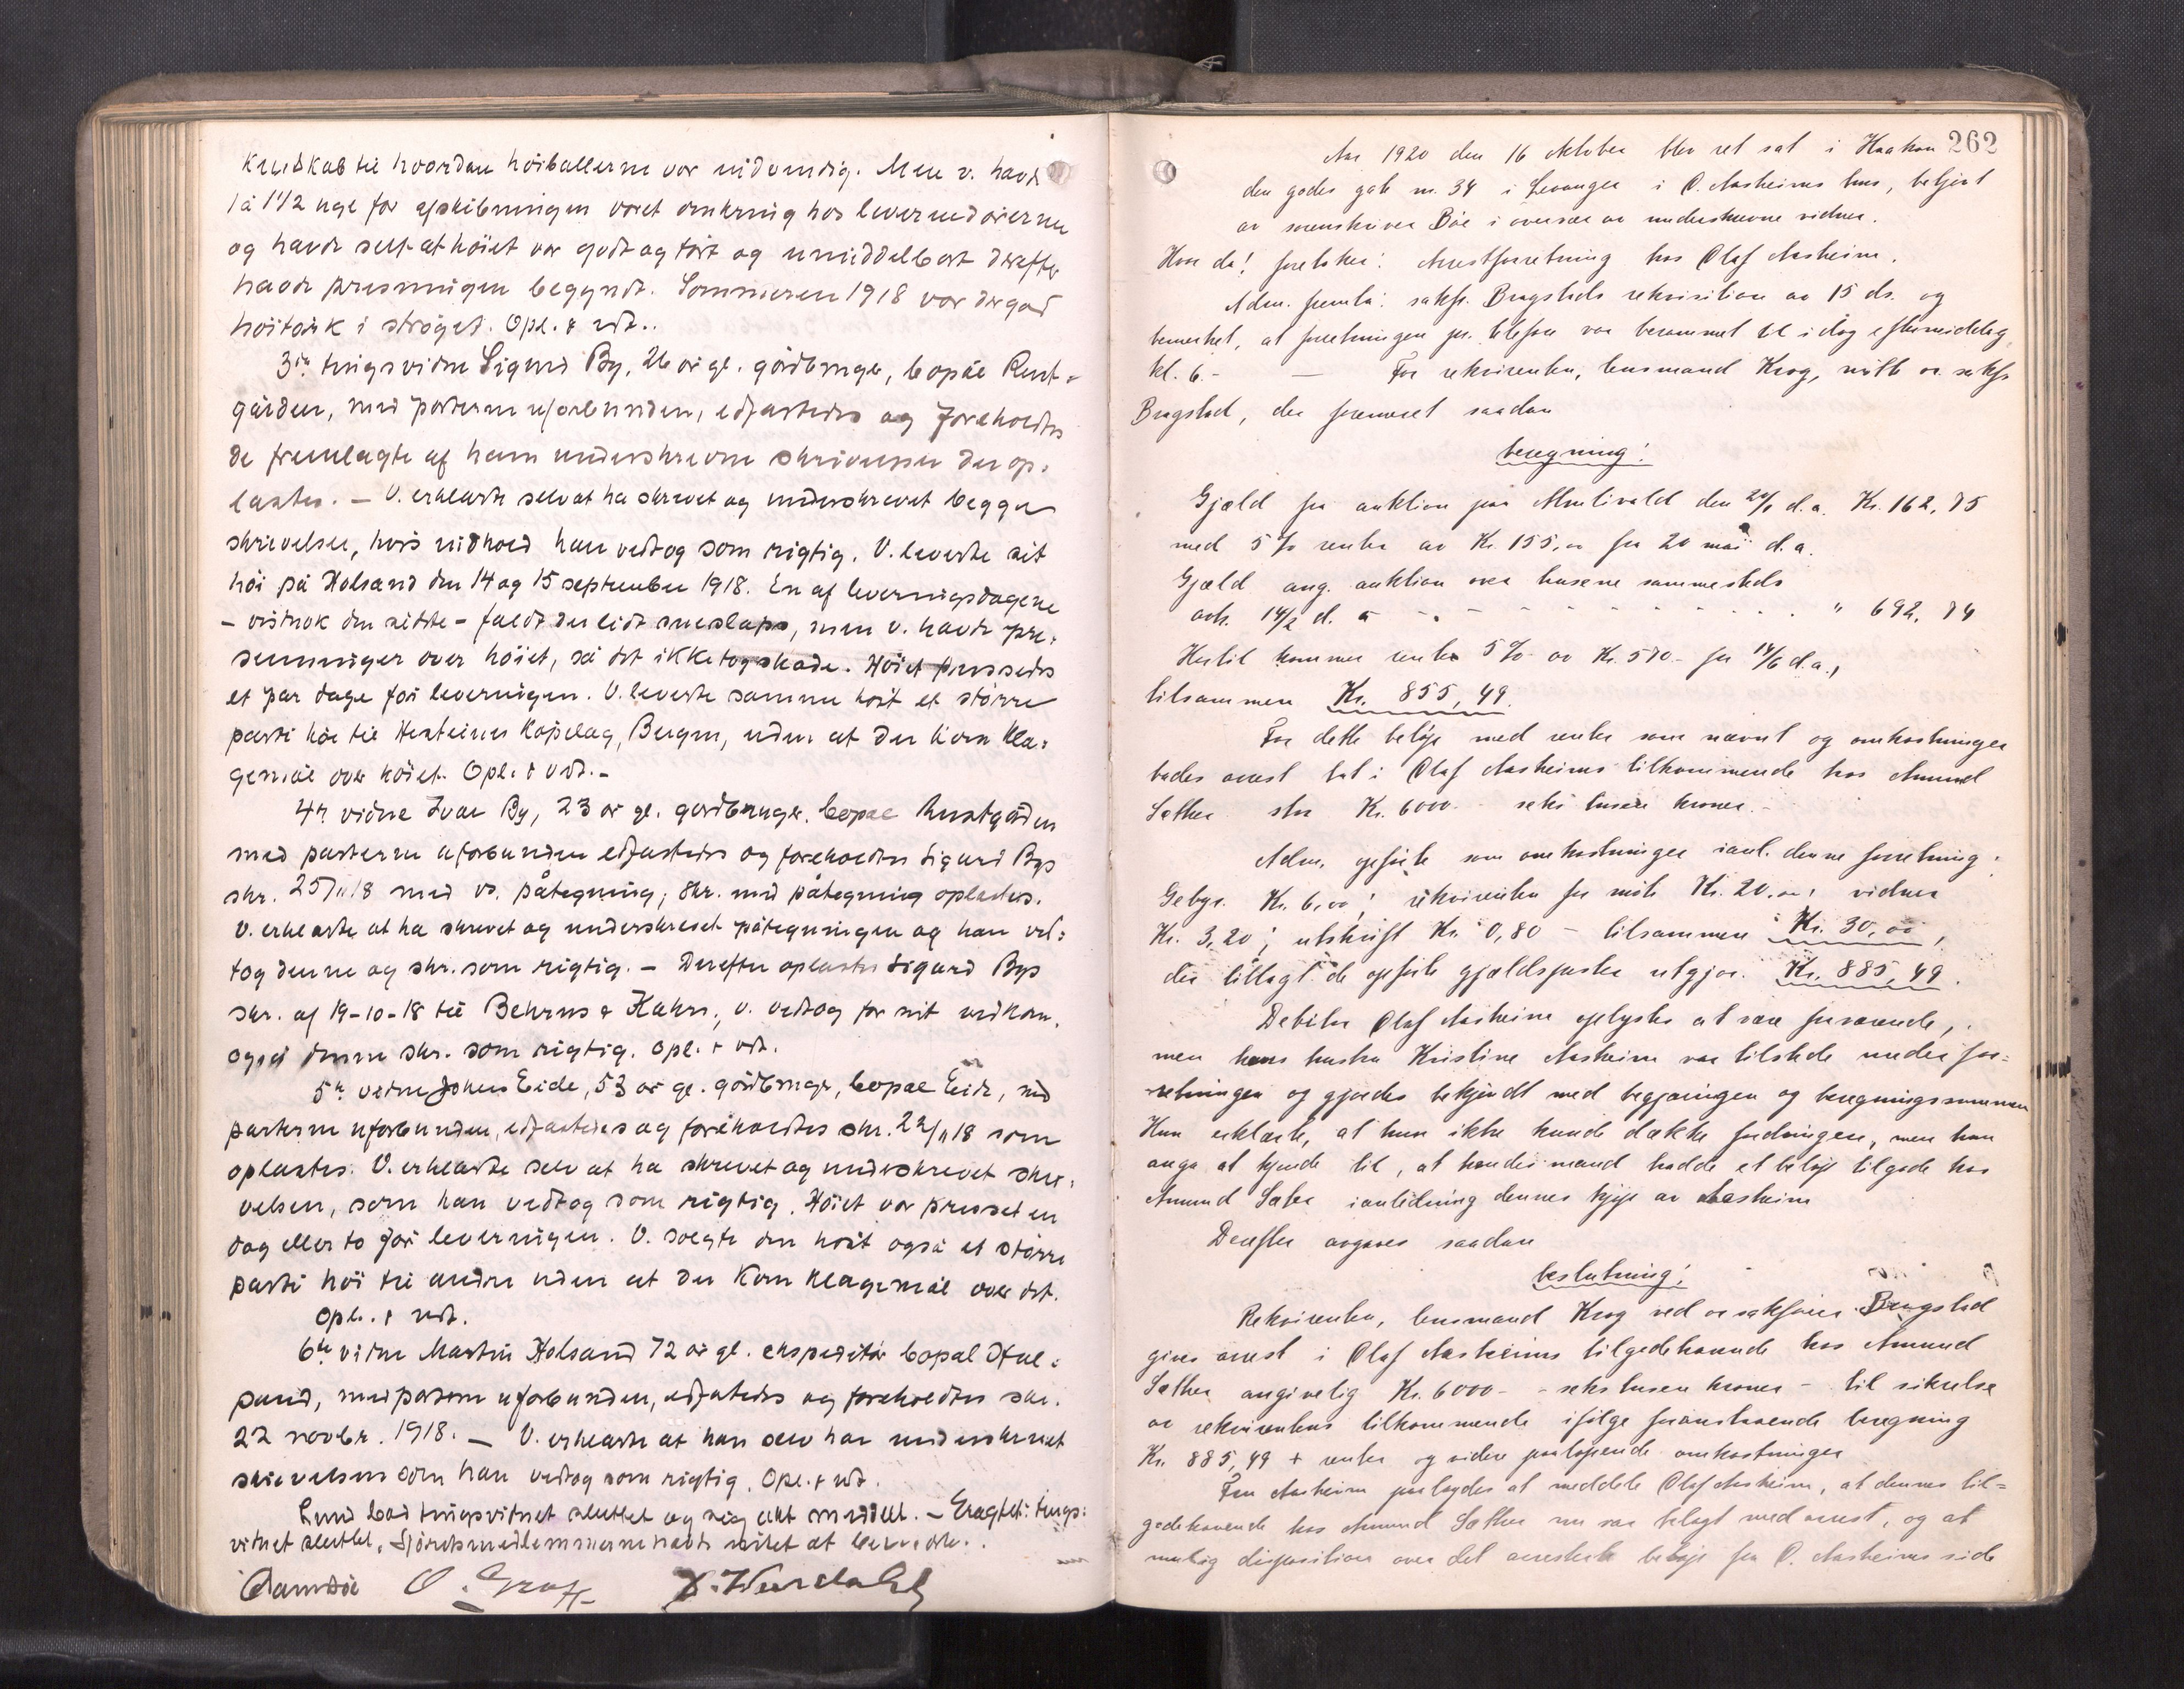 kundskab til hvordan höiballerne var indvendig. Men v. havde
1 à 1 1/2 uge för afskibningen været omkring hos leverandörerne
og havde set at höiet var godt og tört og umiddelbart derefter
havde presningen begyndt. Sommeren 1918 var der god
höitörk i ströget. Opl. & vedt..
3die tingsvidne Sigurd By, 26 år gl. gårdbruger, bopæl Rust-
gården, med parterne uforbunden, edfæstedes og foreholdtes
de fremlagte af ham underskrevne skrivelser der op-
læstes. – V. erklærte selv at ha skrevet og underskrevet begge
skrivelser, hvis indhold han vedtog som rigtig. V. leverte sit
höi på Holsand den 14 og 15 september 1918. En af leveringsdagene
– vistnok den sidste – faldt der lidt sneslaps, men v. havde pre-
senninger over höiet, så det ikke tog skade. Höiet pressedes
et par dage för leveringen. V. leverte samme höst et större
parti höi til Hesteiernes Köpelag, Bergen, uden at der kom kla-
gemål over höiet. Opl. & vedt.-
4de vidne Ivar By, 23 år gl. gårdbruger, bopæl Rustgården
med parterne uforbunden edfæstedes og foreholdtes Sigurd Bys
skr. 25/11 18 med vs. påtegning; skr. med påtegning oplæstes.
V. erklærte at ha skrevet og underskrevet påtegningen og han ved-
tog denne og skr. som rigtig. – Derefter oplæstes Sigurd Bys
skr. af 19-10-18 til Behrens & Kahrs, v. vedtog for sit vedkom.
også denne skr. som rigtig. Opl. + vedt.
5te vidne Johan Eide, 53 år gl. gårdbruger, bopæl Eide, med
parterne uforbunden, edfæstedes og foreholdtes skr. 22/11 18 som
oplæstes. V. erklærte selv at ha skrevet og underskrevet skri-
velsen, som han vedtog som rigtig. Höiet var presset en
dag eller to för leveringen. V. solgte den höst også et större
parti höi til andre uden at der kom klagemål over det.
Opl. + vedt.
6te vidne Martin Holsand 72 år gl. ekspeditör bopæl Hol-
sand, med parterne uforbunden, edfæstedes og foreholdtes skr.
22 novbr. 1918. – V. erklærte at han selv har underskrevet
skrivelsen som han vedtog som rigtig. Opl. + vedt.
Lund bad tingsvidnet sluttet og sig akt meddelt. – Eragtet: Tings-
vidnet sluttet. Sjöretsmedlemmerne havde intet at bemerke.
O. Graff
262
Aar 1920 den 16 oktober blev ret sat i Haakon
den godes gate nr. 34 i Levanger i O. Aasheims hus, betjent
av sorenskriver Böe i overvær av underskrevne vidner.
Hvor da! foretokes: Arrestforretning hos Olaf Aasheim.
Adm. fremla: sakf. Bragstads rekvisition av 15 ds. og
bemerket, at forretningen pr. telefon var berammet til idag eftermiddag
kl. 6. – – For rekvirenten, lensmand Krog, mötte o. sakf.
Bragstad, der fremsat saadan
beregning:
Gjæld fra auktion paa den d.a. Kr. 162,75
med 5 % renter av Kr. 155,00 fra 20 mai d.a.
Gjæld ang. auktion over husene sammesteds
avh. 14/2 d. a - - - - - - - - " 692,74
Hertil kommer renter 5 % av Kr. 570 – fra 14/6 d.a.,
tilsammen Kr. 855,49.
For dette belöp med renter som nævnt og omkostninger
bades arrest tat i Olaf Aasheims tilkommende hos Amund
Sæther stor Kr. 6000 – seks tusen kroner. –
Adm. opförte som omkostninger ianl. denne forretning:
Gebyr Kr. 6,00; rekvirenten for möte Kr. 20,00; vidner
Kr. 3,20; utskrift Kr. 0,80 – tilsammen Kr. 30,00,
der tillagt de opförte gjældsposter utgjör Kr. 885,49.
Debitor Olaf Aasheim oplystes at være fraværende,
men hans hustru Kristine Aasheim var tilstede under for-
retningen og gjordes bekjendt med begjæringen og beregningssummen
Hun erklærte, at hun ikke kunde dække fordringen, men hun
anga at kjende til, at hendes mand hadde et belöp tilgode hos
Amund Sæter i anledning dennes kjöp av Aasheim
Derefter avgaves saadan
beslutning:
Rekvirenten, lensmand Krog ved o. sakförer Bragstad
gives arrest i Olaf Aasheims tilgodehavende hos Amund
Sæther angivelig Kr. 6000 – seks tusen kroner – til sikrelse
av rekvirentens tilkommende ifölge foranstaaende beregning
Kr. 885,49 + renter og videre paalöpende omkostninger
Fru Aasheim paalagdes at meddele Olaf Aasheim, at dennes til-
godehavende hos Amund Sæther nu var belagt med arrest, og at
mulig disposition over det arresterte belöp fra O. Aasheims side